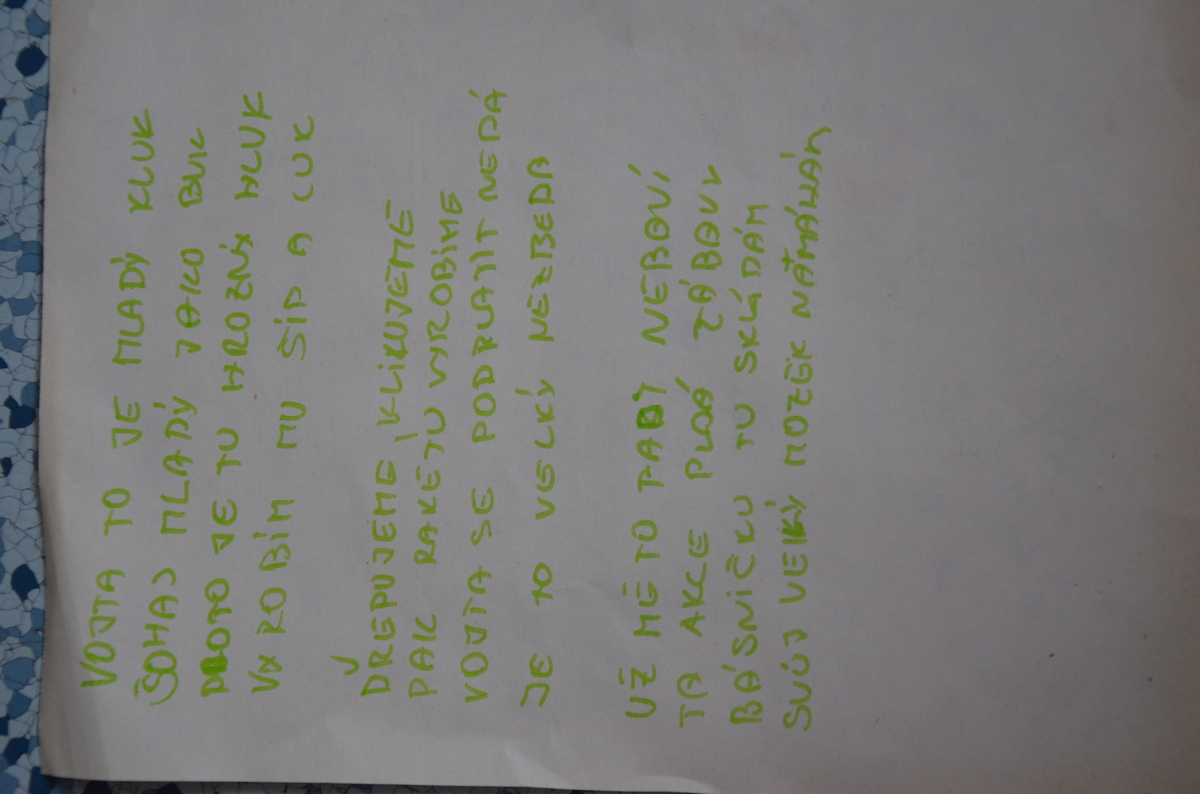 VOJTA TO JE MLADÝ KLUK
ŠOHAJ MLADÝ JAKO BUK
PROTO JE TU HROZNÝ HLUK
VYROBÍM MU ŠÍP A LUK
DŘEPUJEME, KLIKUJEME
PAK RAKETU VYROBÍME
VOJTA SE PODPLATIT NEDÁ
JE TO VELKÝ NEZBEDA
UŽ MĚ TO TADY NEBAVÍ
TA AKCE PLNÁ ZÁBAVY
BÁSNIČKU TU SKLÁDÁM
SVŮJ VELKÝ MOZEK NAMÁHÁM